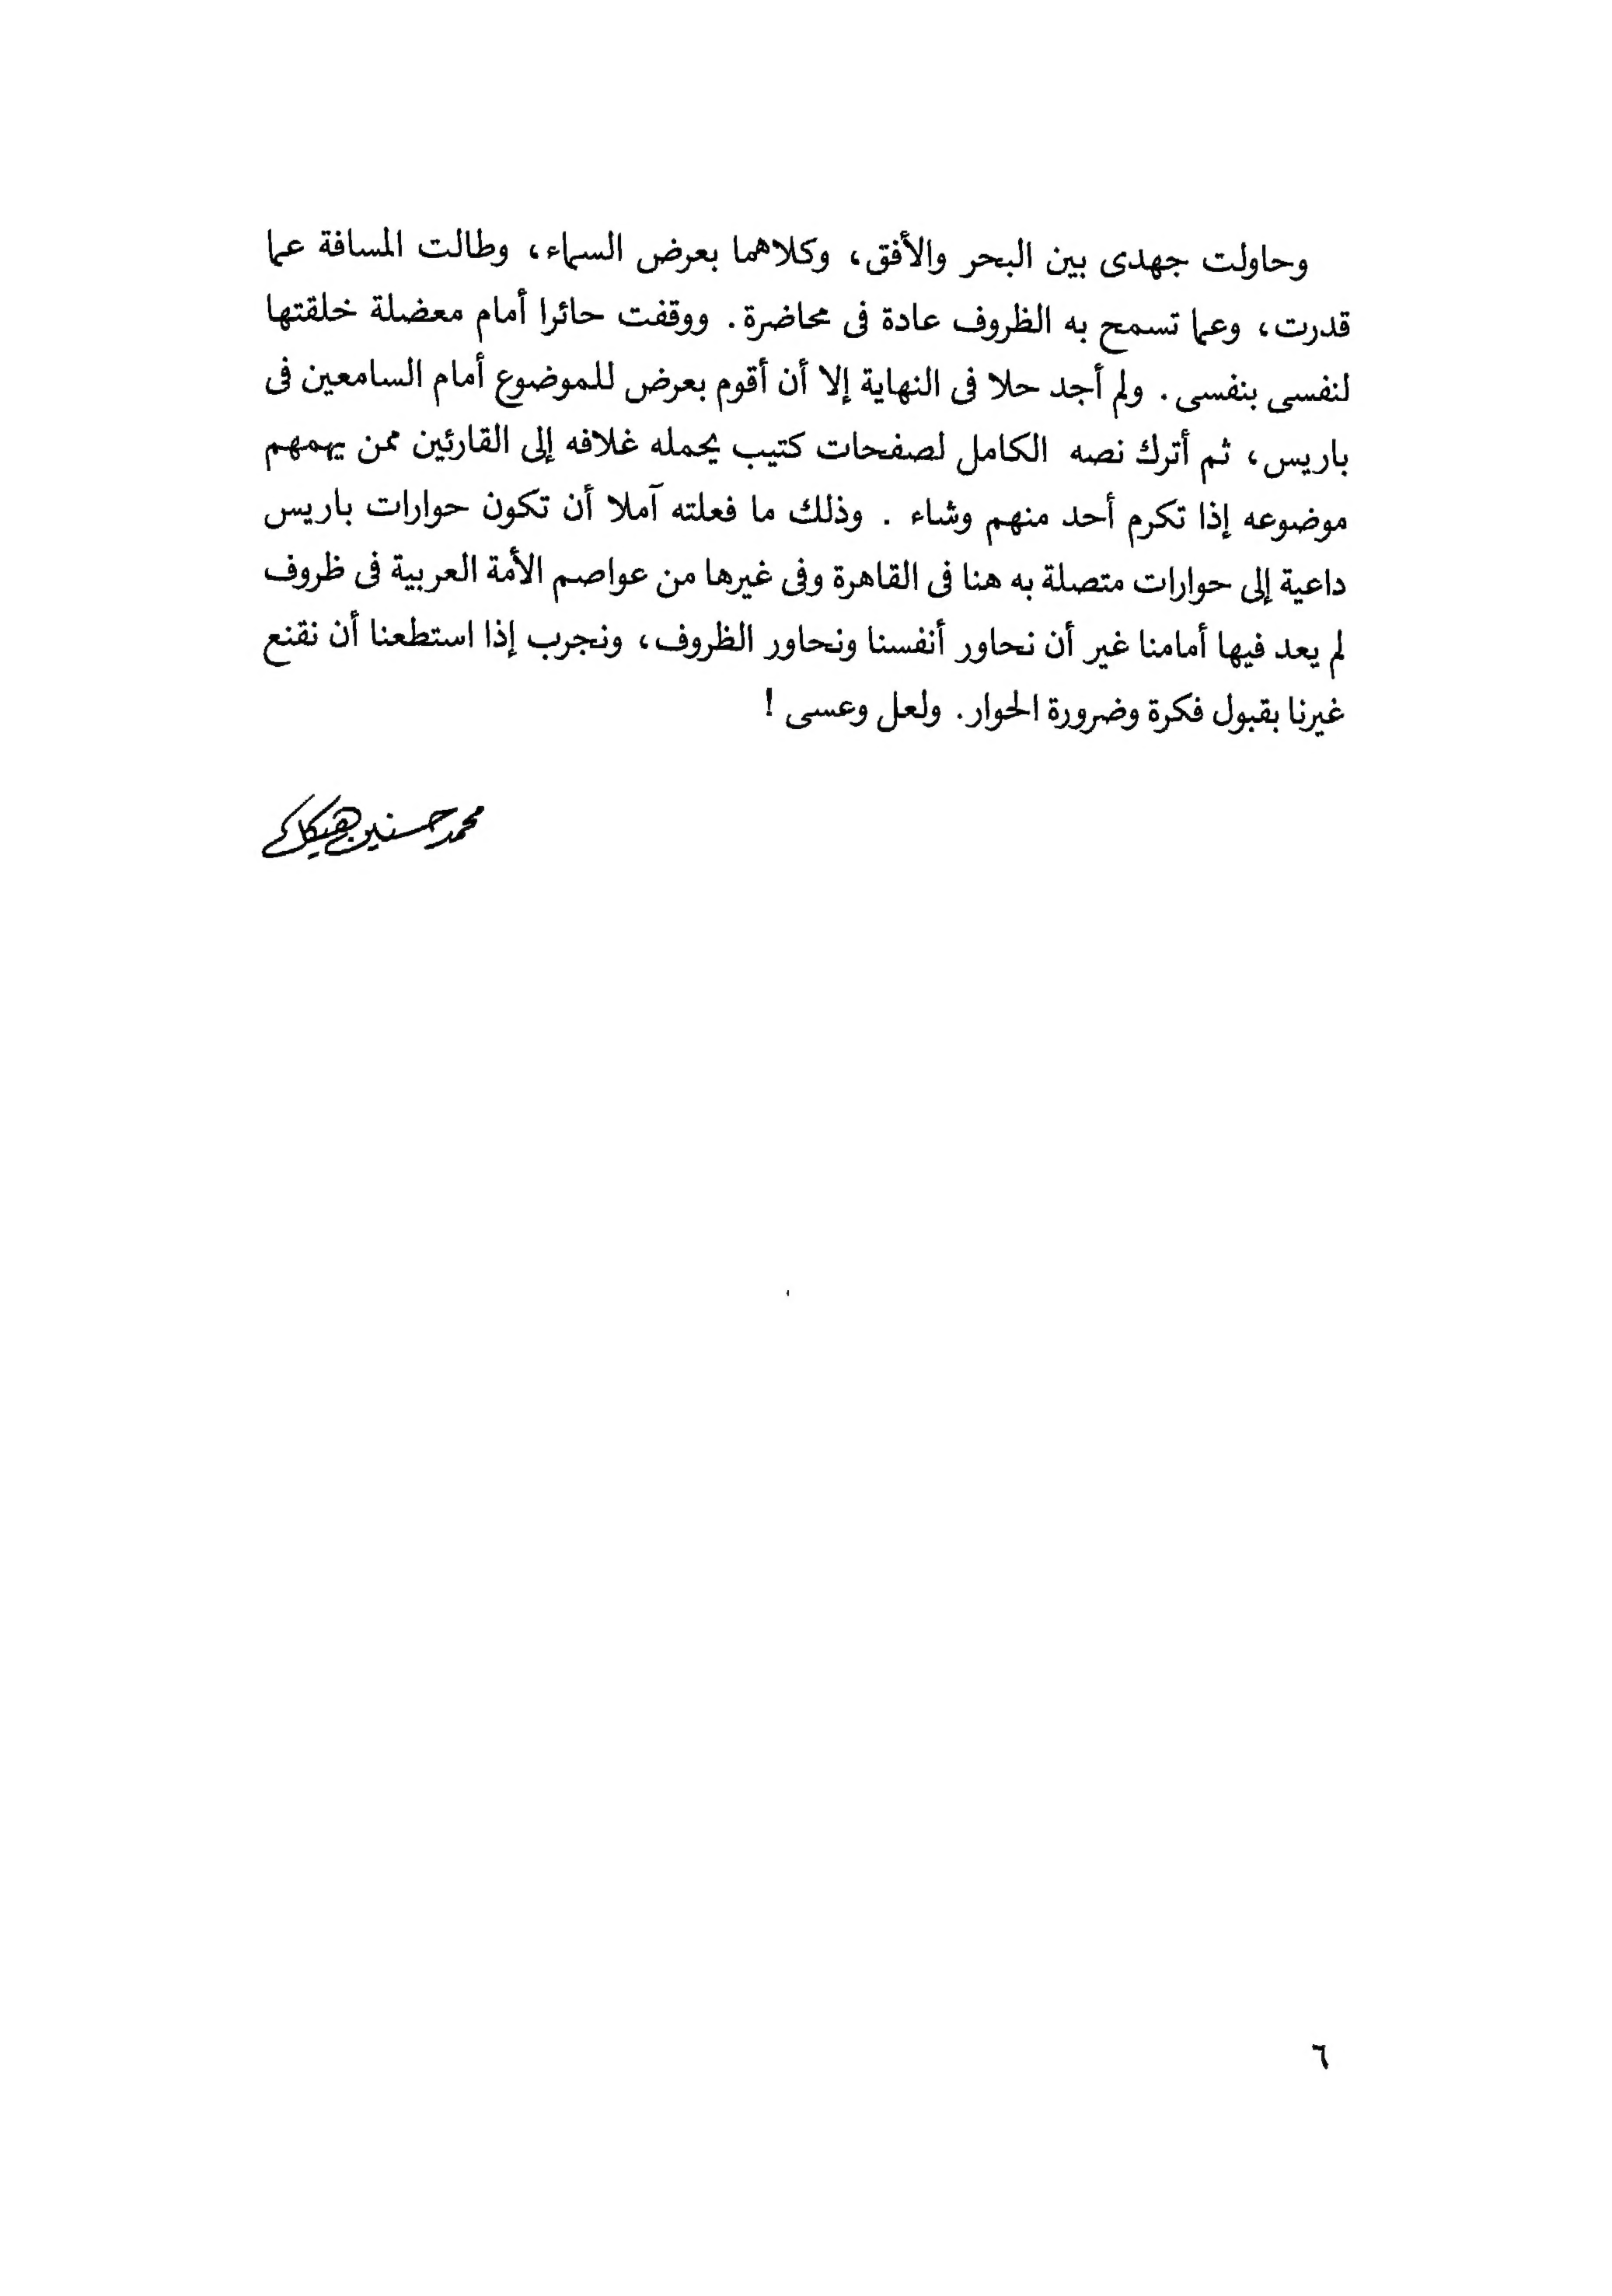 وحاولت جهدى بين البحر والأفق، وكلاهما بعرض السماء، وطالت المسافة عما
قدرت، وعما تسمح به الظروف عادة فى محاضرة. ووقفت حائرا أمام معضلة خلقتها
لنفسى بنفسى. ولم أجد حلا فى النهاية إلا أن أقوم بعرض للموضوع أمام السامعين فى
باريس، ثم أترك نصه الكامل لصفحات كتيب يحمله غلافه إلى القارئين ممن يهمهم
موضوعه إذا تكرم أحد منهم وشاء . وذلك ما فعلته آملا أن تكون حوارات باريس
داعية إلى حوارات متصلة به هنا فى القاهرة وفى غيرها من عواصم الأمة العربية فى ظروف
لم يعد فيها أمامنا غير أن نحاور أنفسنا ونحاور الظروف، ونجرب إذا استطعنا أن نقنع
غيرنا بقبول فكرة وضرورة الحوار. ولعل وعسى !
محمد حسنين هيكل
٦